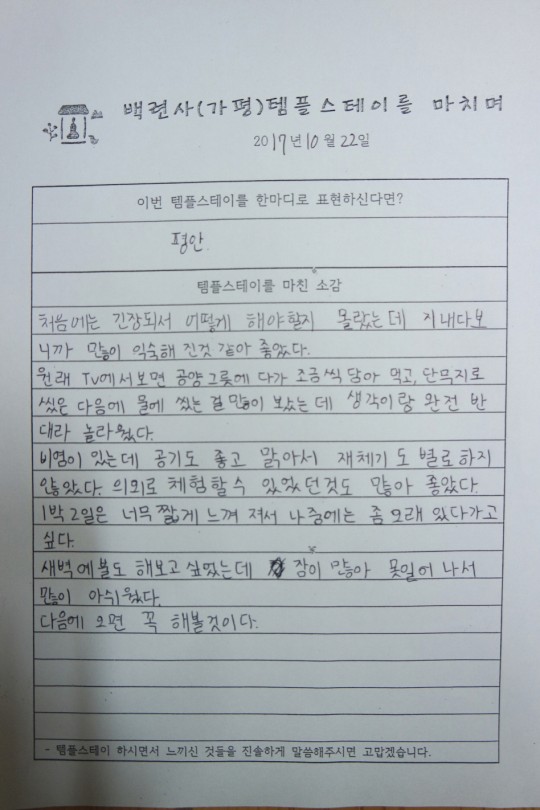 백련사(가평)템플스테이를 마치며
2017년 10월 22일
이번 템플스테이를 한마디로 표현하신다면?
평안.
템플스테이를 마친 소감
처음에는 긴장되서 어떻게 해야할지 몰랐는데 지내다보
니까 많이 익숙해 진것 같아 좋았다.
원래 Tv에서 보면 공양 그릇에 다가 조금씩 담아 먹고, 단무지로
씼은 다음에 물에 씼는 걸 많이 보았는데 생각이랑 완전 반
대라 놀라웠다.
비염이 있는데 공기도 좋고 맑아서 재체기도 별로 하지
않았다. 의외로 체험할수 있었던것도 많아 좋았다.
1박 2일은 너무 짧게 느껴 져서 나중에는 좀 오래 있다가고
싶다.
새벽예불도 해보고 싶었는데 잠이 많아 못일어나서
많이 아쉬웠다.
다음에 오면 꼭 해볼것이다.
- 템플스테이 하시면서 느끼신 것들을 진솔하게 말씀해주시면 고맙겠습니다.